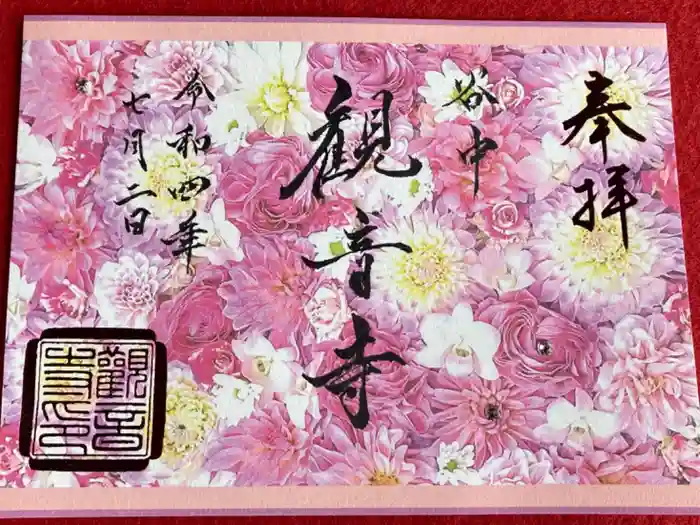 奉拝
谷中
観音寺
令和四年
七月二日
觀音
寺印